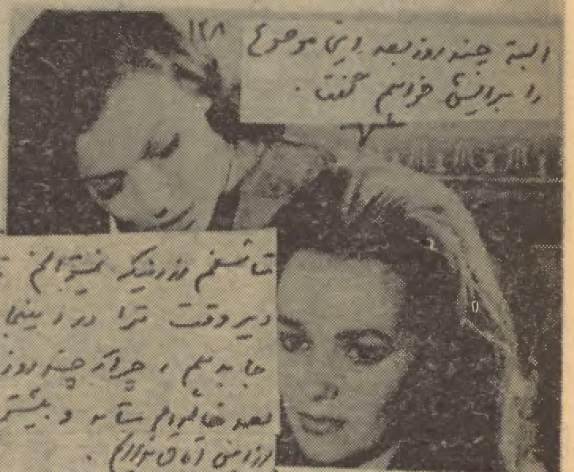 ۱۳۸
البته چند روز بعد این موضوع
را برایش خواهم گفت .
متأسفم ازینکه نمیتوانم
دیر وقت ترا در اینجا
جا بدهم ، چراکه چند روز
بعد خانواده ام میآید و بیشتر
ازین اتاق ندارم .